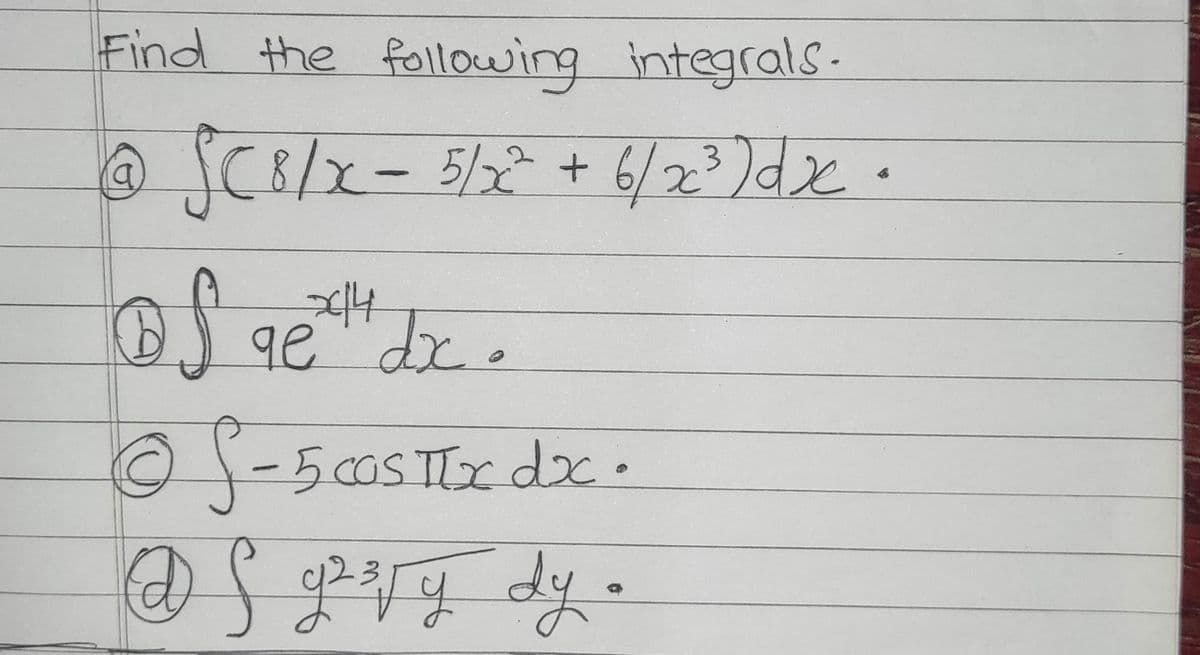 Find the following integrals.
ⓐ ∫(8/x - 5/x² + 6/x³)dx.
ⓑ ∫ 9e^{x/4} dx.
ⓒ ∫-5 cos πx dx.
ⓓ ∫ y² ³√y dy.